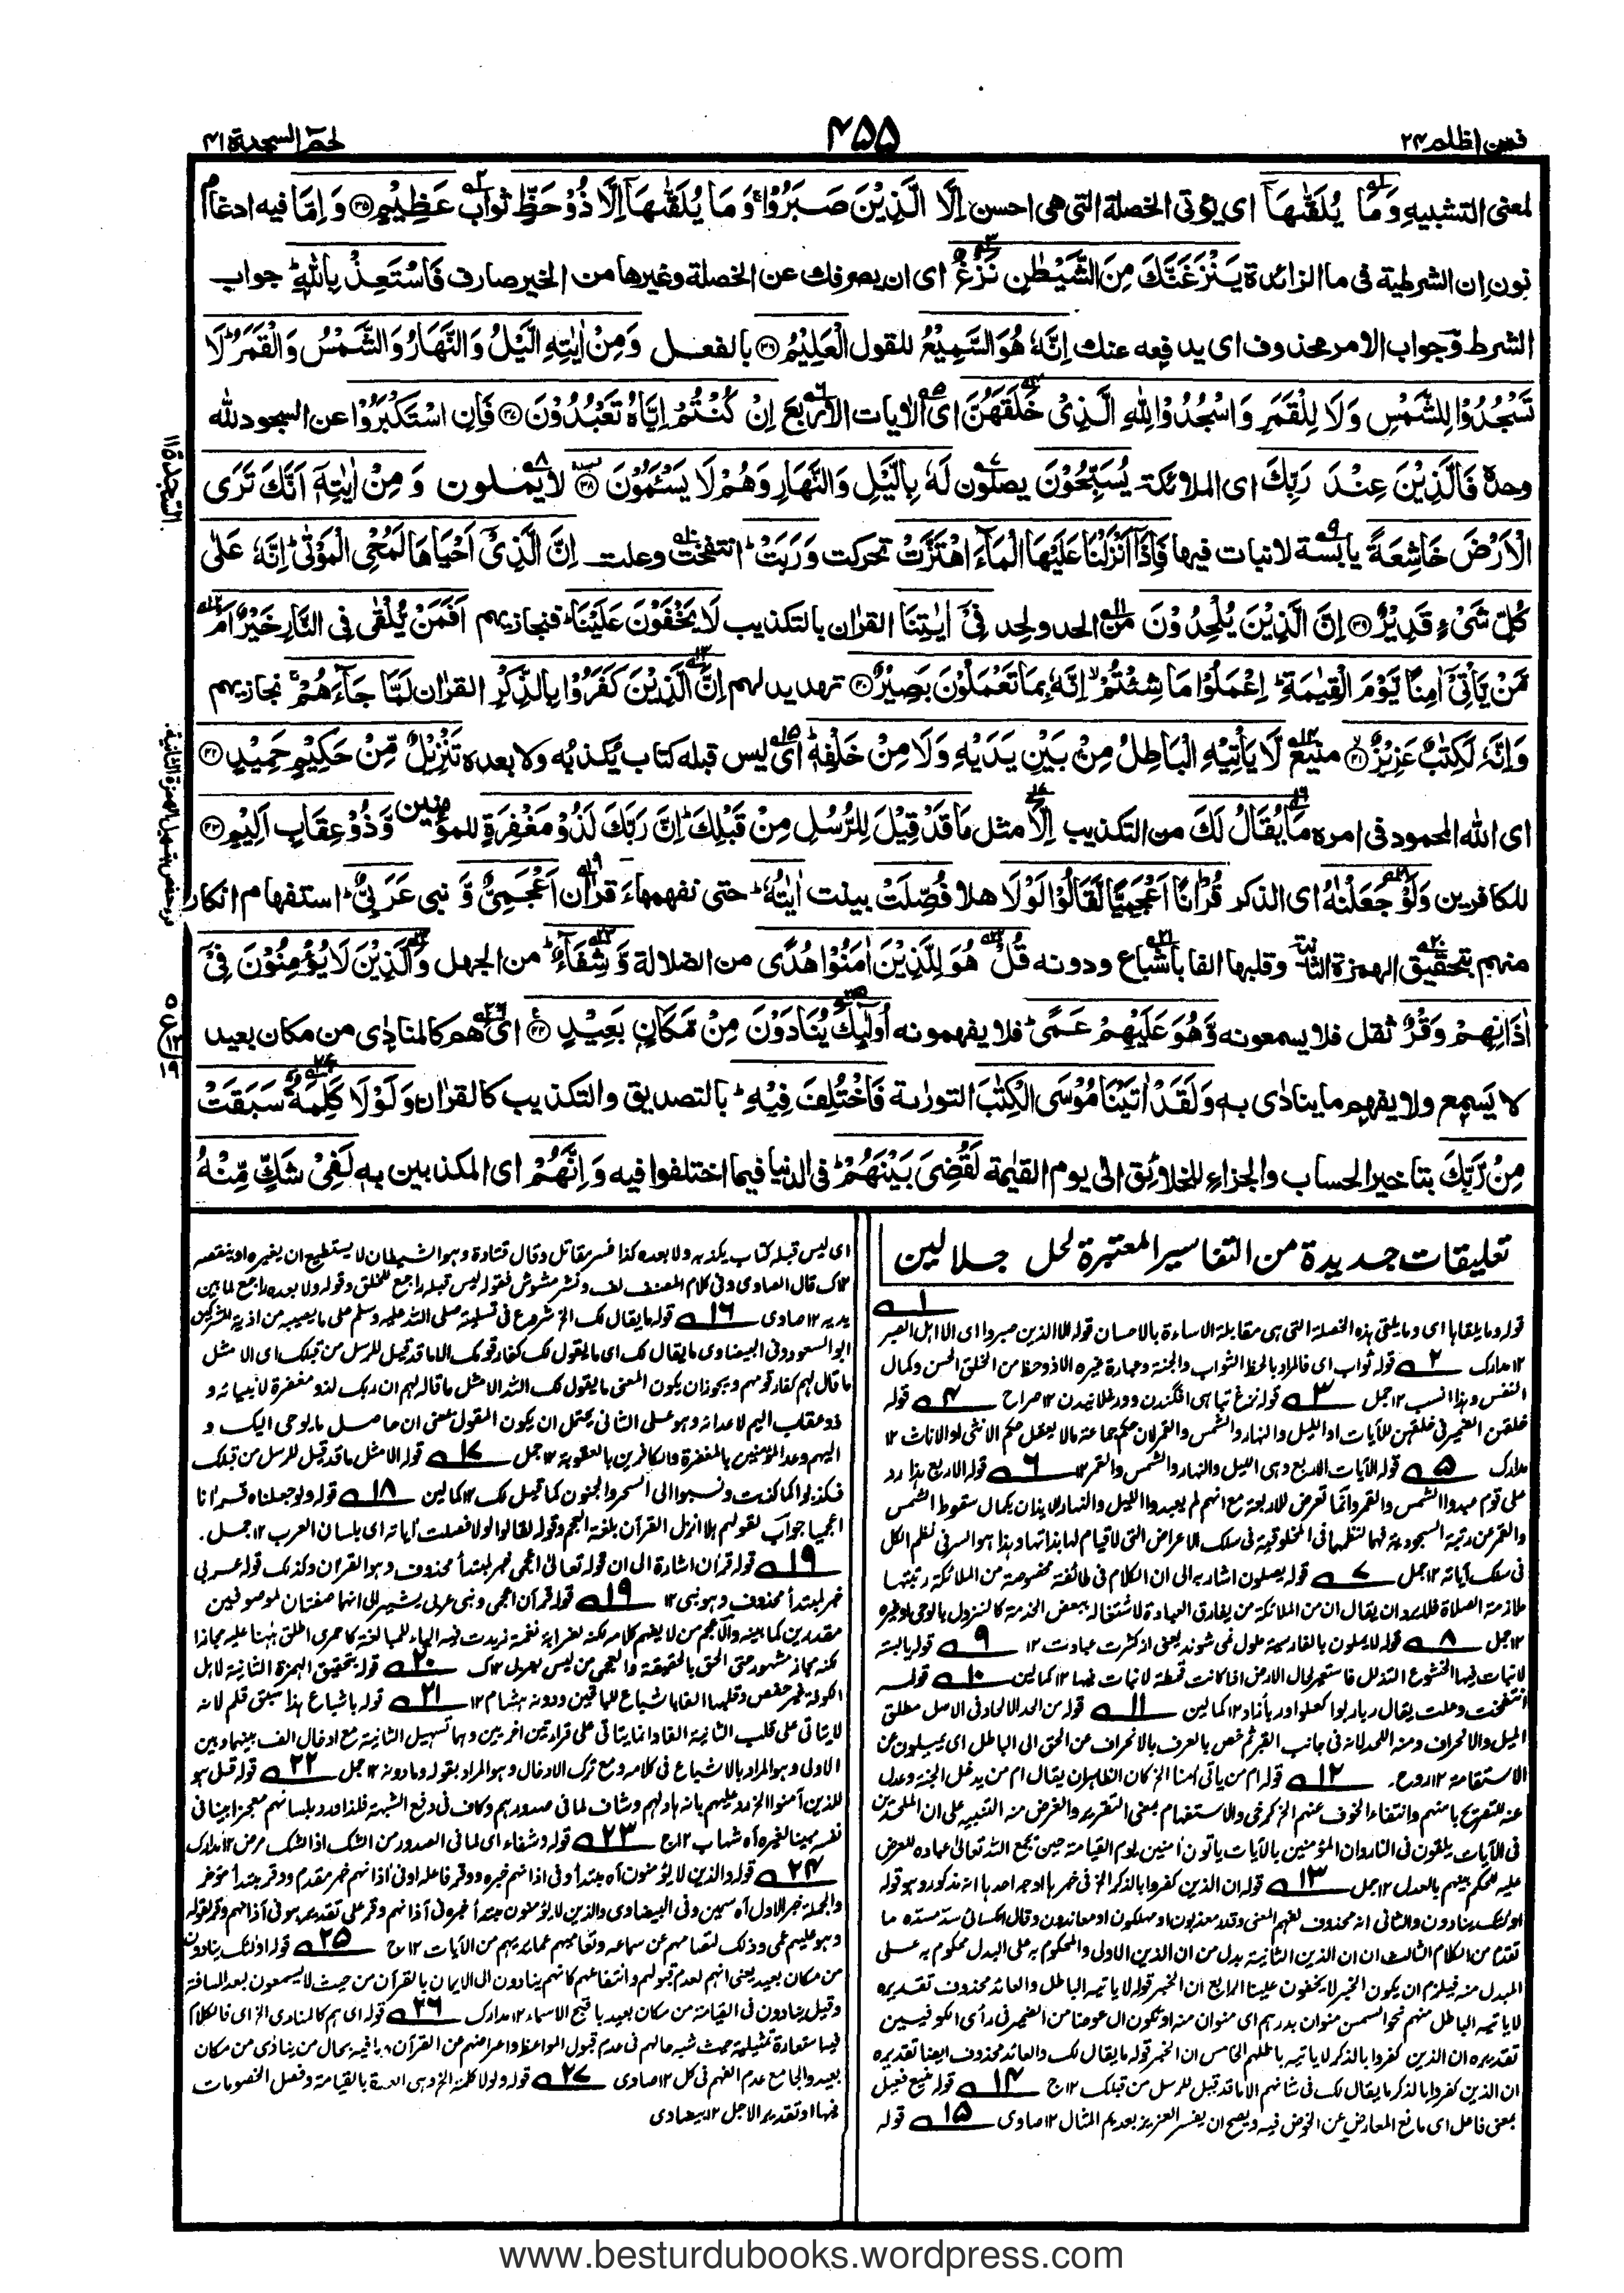 فمن اظلم ٢٤
٤٥٥
لحم السجدة ٤١
لمعنى التشبيه وَمَا يُلَقّٰىهَآ اى يؤتى الخصلة التى هى احسن اِلَّا الَّذِيْنَ صَبَرُوْا ۚ وَمَا يُلَقّٰىهَآ اِلَّا ذُوْ حَظٍّ ثواب عَظِيْمٍ ﴿٣٥﴾ وَاِمَّا فيه ادغام
نون ان الشرطية فى ما الزائدة يَنْزَغَنَّكَ مِنَ الشَّيْطٰنِ نَزْغٌ اى ان يصرفك عن الخصلة وغيرها من الخير صارف فَاسْتَعِذْ بِاللّٰهِ ؕ جواب
الشرط وجواب الامر محذوف اى يدفعه عنك اِنَّهٗ هُوَ السَّمِيْعُ للقول الْعَلِيْمُ ﴿٣٦﴾ بالفعل وَمِنْ اٰيٰتِهِ الَّيْلُ وَالنَّهَارُ وَالشَّمْسُ وَالْقَمَرُ ؕ لَا
تَسْجُدُوْا لِلشَّمْسِ وَلَا لِلْقَمَرِ وَاسْجُدُوْا لِلّٰهِ الَّذِىْ خَلَقَهُنَّ اى الايات الاربع اِنْ كُنْتُمْ اِيَّاهُ تَعْبُدُوْنَ ﴿٣٧﴾ فَاِنِ اسْتَكْبَرُوْا عن السجود لله
وحده فَالَّذِيْنَ عِنْدَ رَبِّكَ اى الملائكة يُسَبِّحُوْنَ يصلون لَهٗ بِالَّيْلِ وَالنَّهَارِ وَهُمْ لَا يَسْـَٔمُوْنَ ﴿٣٨﴾ لا يملون وَمِنْ اٰيٰتِهٖٓ اَنَّكَ تَرَى
الْاَرْضَ خَاشِعَةً يابسة لا نبات فيها فَاِذَآ اَنْزَلْنَا عَلَيْهَا الْمَآءَ اهْتَزَّتْ تحركت وَرَبَتْ ؕ انتفخت وعلت اِنَّ الَّذِىْٓ اَحْيَاهَا لَمُحْىِ الْمَوْتٰى ؕ اِنَّهٗ عَلٰى
كُلِّ شَىْءٍ قَدِيْرٌ ﴿٣٩﴾ اِنَّ الَّذِيْنَ يُلْحِدُوْنَ من الحد ولحد فِىْٓ اٰيٰتِنَا القران بالتكذيب لَا يَخْفَوْنَ عَلَيْنَا ؕ فنجازيهم اَفَمَنْ يُّلْقٰى فِى النَّارِ خَيْرٌ اَمْ
مَّنْ يَّاْتِىْٓ اٰمِنًا يَّوْمَ الْقِيٰمَةِ ؕ اِعْمَلُوْا مَا شِئْتُمْ ۙ اِنَّهٗ بِمَا تَعْمَلُوْنَ بَصِيْرٌ ﴿٤٠﴾ تهديد لهم اِنَّ الَّذِيْنَ كَفَرُوْا بِالذِّكْرِ القران لَمَّا جَآءَهُمْ ۚ نجازيهم
وَاِنَّهٗ لَكِتٰبٌ عَزِيْزٌ ﴿٤١﴾ منيع لَّا يَاْتِيْهِ الْبَاطِلُ مِنْۢ بَيْنِ يَدَيْهِ وَلَا مِنْ خَلْفِهٖ ؕ اى ليس قبله كتاب يكذبه ولا بعده تَنْزِيْلٌ مِّنْ حَكِيْمٍ حَمِيْدٍ ﴿٤٢﴾
اى الله المحمود فى امره مَا يُقَالُ لَكَ من التكذيب اِلَّا مثل مَا قَدْ قِيْلَ لِلرُّسُلِ مِنْ قَبْلِكَ ؕ اِنَّ رَبَّكَ لَذُوْ مَغْفِرَةٍ للمؤمنين وَّذُوْ عِقَابٍ اَلِيْمٍ ﴿٤٣﴾
للكافرين وَلَوْ جَعَلْنٰهُ اى الذكر قُرْاٰنًا اَعْجَمِيًّا لَّقَالُوْا لَوْلَا هلا فُصِّلَتْ بينت اٰيٰتُهٗ ؕ حتى نفهمها ءَ قران اَعْجَمِىٌّ وَّ نبى عَرَبِىٌّ ؕ استفهام انكار
منهم بتحقيق الهمزة الثانية وقلبها الفا باشباع ودونه قُلْ هُوَ لِلَّذِيْنَ اٰمَنُوْا هُدًى من الضلالة وَّشِفَآءٌ ؕ من الجهل وَالَّذِيْنَ لَا يُؤْمِنُوْنَ فِىْٓ
اٰذَانِهِمْ وَقْرٌ ثقل فلا يسمعونه وَّهُوَ عَلَيْهِمْ عَمًى ؕ فلا يفهمونه اُولٰٓئِكَ يُنَادَوْنَ مِنْ مَّكَانٍۢ بَعِيْدٍ ﴿٤٤﴾ اى هم كالمنادى من مكان بعيد
لا يسمع ولا يفهم ما ينادى به وَلَقَدْ اٰتَيْنَا مُوْسَى الْكِتٰبَ التورٰىة فَاخْتُلِفَ فِيْهِ ؕ بالتصديق والتكذيب كالقران وَلَوْلَا كَلِمَةٌ سَبَقَتْ
مِنْ رَّبِّكَ بتاخير الحساب والجزاء للخلائق الى يوم القيٰمة لَقُضِىَ بَيْنَهُمْ ؕ فى الدنيا فيما اختلفوا فيه وَاِنَّهُمْ اى المكذبين به لَفِىْ شَكٍّ مِّنْهُ
السجدة ١١
تعليقات جديدة من التفاسير المعتبرة لحل جلالين
١ قوله وما يلقاها اى وما يلقى هذه الخصلة التى هى مقابلة الاساءة بالاحسان قوله الا الذين صبروا اى الا اهل الصبر
١٢ مدارك ٢ قوله ثواب اى فالمراد بالحظ الثواب والجنة وعبارة غيره الا ذو حظ من الخلق الحسن وكمال
النفس وهذا انسب ١٢ جمل ٣ قوله نزغ تباهى افگندن وورغلانيدن ١٢ صراح ٤ قوله
خلقهن الضمير فى خلقهن للآيات او الليل والنهار والشمس والقمر لان حكم جماعة ما لا يعقل حكم الانثى او الاناث ١٢
مدارك ٥ قوله الآيات الاربع وهى الليل والنهار والشمس والقمر ١٢ ٦ قوله الاربع هذا رد
على قوم عبدوا الشمس والقمر وانما تعرض للاربعة مع انهم لم يعبدوا الليل والنهار للايذان بكمال سقوط الشمس
والقمر عن رتبة السجودية لهما لنظمهما فى المخلوقية فى سلك الاعراض التى لا قيام لها بذاتها وهذا هو السر فى نظم الكل
فى سلك آياته ١٢ جمل ٧ قوله يصلون اشار به الى ان الكلام فى طائفة مخصوصة من الملائكة رتبتها
ملازمة الصلاة فلا يرد ان يقال ان من الملائكة من يفارق العبادة لاشتغاله ببعض الخدمة كالنزول بالوحى او غيره
١٢ جمل ٨ قوله لا يملون بالفارسية ملول نمى شوند يعنى از كثرت عبادت ١٢ ٩ قوله يابسة
لا نبات فيها الخشوع التذلل فاستعير لحال الارض اذا كانت قحطة لا نبات فيها ١٢ كمالين ١٠ قوله
انتفخت وعلت يقال ربا يربوا كعلوا وربا زاد ١٢ كمالين ١١ قوله من الحد الالحاد فى الاصل مطلق
الميل والانحراف ومنه اللحد لانه فى جانب القبر ثم خص بالعرف بالانحراف عن الحق الى الباطل اى يميلون عن
الاستقامة ١٢ روح ١٢ قوله ام من ياتى آمنا الخ كان الظاهر ان يقال ام من يدخل الجنة وعدل
عنه للتصريح بامنهم وانتفاء الخوف عنهم الخ كرخى والاستفهام بمعنى التقرير والغرض منه التنبيه على ان الملحدين
فى الآيات يلقون فى النار وان المؤمنين بالآيات ياتون آمنين يوم القيامة حين يجمع الله تعالى عباده للعرض
عليه للحكم بينهم بالعدل ١٢ جمل ١٣ قوله ان الذين كفروا بالذكر الخ فى خبرها اوجه احدها انه مذكور وهو قوله
اولئك ينادون والثانى انه محذوف لفهم المعنى وقدر معذبون او مهلكون او معاندون وقال الكسائى سد مسده ما
تقدم من الكلام الثالث ان ان الذين الثانية بدل من ان الذين الاولى والمحكوم به على البدل محكوم به على
المبدل منه فيلزم ان يكون الخبر لا يخفون علينا الرابع ان الخبر قوله لا ياتيه الباطل والعائد محذوف تقديره
لا ياتيه الباطل منهم نحو السمن منوان بدرهم اى منوان منه او تكون ال عوضا من الضمير فى رأى الكوفيين
تقديره ان الذين كفروا بالذكر لا ياتيه باطلهم الخامس ان الخبر قوله ما يقال لك والعائد محذوف ايضا تقديره
ان الذين كفروا بالذكر ما يقال لك فى شانهم الا ما قد قيل للرسل من قبلك ١٢ ج ١٤ قوله منيع فعيل
بمعنى فاعل اى مانع المعارض عن الخوض فيه ويصح ان يفسر العزيز بعديم المثال ١٢ صاوى ١٥ قوله
اى ليس قبله كتاب يكذبه ولا بعده كذا فسر مقاتل وقال قتادة وهو الشيطان لا يستطيع ان يغيره او ينقصه
١٢ ك قال الصاوى وفى كلام المصنف لف ونشر مشوش فقوله ليس قبله راجع للخلف وقوله ولا بعده راجع لما بين
يديه ١٢ صاوى ١٦ قوله ما يقال لك الخ شروع فى تسليته صلى الله عليه وسلم على ما يصيبه من اذية المشركين
ابو السعود وفى البيضاوى ما يقال لك اى ما يقول لك كفار قومك الا ما قد قيل للرسل من قبلك اى الا مثل
ما قال لهم كفار قومهم ويجوز ان يكون المعنى ما يقول لك الله الا مثل ما قاله لهم ان ربك لذو مغفرة لانبيائه و
ذو عقاب اليم لاعدائه وهو على الثانى يحتمل ان يكون المقول بمعنى ان حاصل ما يوحى اليك و
اليهم وعد المؤمنين بالمغفرة والكافرين بالعقوبة ١٢ جمل ١٧ قوله الا مثل ما قد قيل للرسل من قبلك
فكذبوا كما كذبت ونسبوا الى السحر والجنون كما قيل لك ١٢ كمالين ١٨ قوله ولو جعلناه قرانا
اعجميا جواب لقولهم هلا انزل القرآن بلغة العجم وقوله لقالوا لولا فصلت آياته اى بلسان العرب ١٢ جمل
١٩ قوله قرآن اشارة الى ان قوله تعالى اعجمى خبر لمبتدأ محذوف وهو القرآن وكذلك قوله عربى
خبر لمبتدأ محذوف وهو نبى ١٢ ١٩ قوله قرآن اعجمى ونبى عربى يشير الى انهما صفتان لموصوفين
مقدرين كما بينه والاعجم من لا يفهم كلامه لكنه لغرابة نغمته زيدت فيه الياء للمبالغة كاحمرى اطلق ههنا عليه مجازا
لكنه مجاز مشهور حتى الحق بالحقيقة والعجمى من ليس بعربى ١٢ ك ٢٠ قوله بتحقيق الهمزة الثانية لاهل
الكوفة غير حفص وقلبها الفا باشباع للباقين ودونه هشام ١٢ ٢١ قوله باشباع هذا سبق قلم لانه
لا يتاتى على قلب الثانية الفا وانما يتاتى على قراءتين اخريين وهما تسهيل الثانية مع ادخال الف بينها وبين
الاولى وهو المراد بالاشباع فى كلامه ومع ترك الادخال وهو المراد بقوله ومادونه ١٢ جمل ٢٢ قوله قل هو
للذين آمنوا الخ رد عليهم بانه هاد لهم وشاف لما فى صدورهم وكاف فى دفع الشبهة فلذا ورد بلسانهم معجزا بينا فى
نفسه مبينا لغيره اه شهاب ١٢ ج ٢٣ قوله وشفاء اى لما فى الصدور من الشك اذ الشك مرض ١٢ مدارك
٢٤ قوله والذين لا يؤمنون اه مبتدأ وفى آذانهم خبره ووقر فاعله او فى آذانهم خبر مقدم ووقر مبتدأ مؤخر
والجملة خبر الاول اه سمين وفى البيضاوى والذين لا يؤمنون مبتدأ خبره فى آذانهم وقر على تقدير هو فى آذانهم وقر لقوله
وهو عليهم عمى وذلك لتصامهم عن سماعه وتعاميهم عما يريهم من الآيات ١٢ ج ٢٥ قوله اولئك ينادون
من مكان بعيد يعنى انهم لعدم قبولهم وانتفاعهم كانهم ينادون الى الايمان بالقرآن من حيث لا يسمعون لبعد المسافة
وقيل ينادون فى القيامة من مكان بعيد باقبح الاسماء ١٢ مدارك ٢٦ قوله اى هم كالمنادى الخ اى فالكلام
فيه استعارة تمثيلية حيث شبه حالهم فى عدم قبول المواعظ واعراضهم عن القرآن وما فيه بحال من ينادى من مكان
بعيد والجامع عدم الفهم فى كل ١٢ صاوى ٢٧ قوله ولولا كلمة الخ وهى العدة بالقيامة وفصل الخصومات
فيها او تقدير الاجل ١٢ بيضاوى
www.besturdubooks.wordpress.com